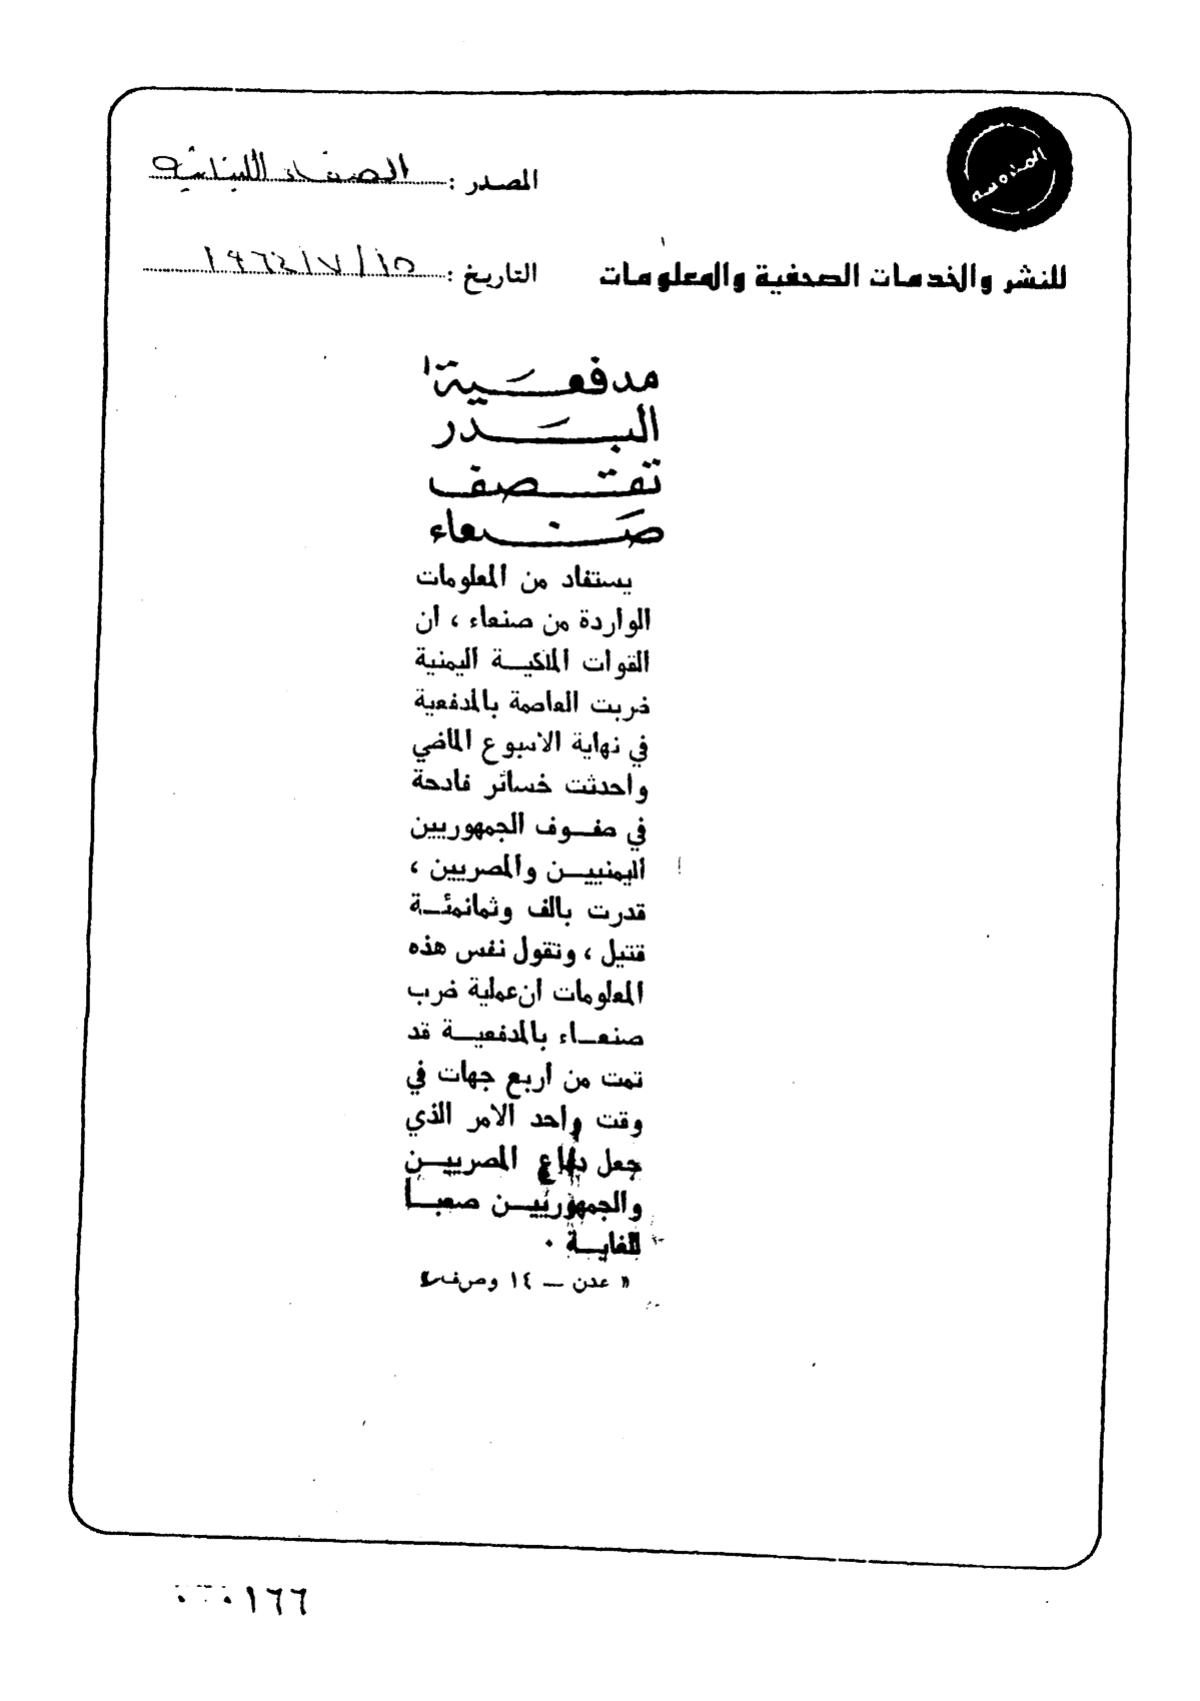 المصدر : الصفاء اللبنانية
للنشر والخدمات الصحفية والمعلومات
التاريخ : ١٥/٧/١٩٦٤
مدفعية
البدر
تقصف
صنعاء
يستفاد من المعلومات
الواردة من صنعاء ، ان
القوات الملكية اليمنية
ضربت العاصمة بالمدفعية
في نهاية الاسبوع الماضي
واحدثت خسائر فادحة
في صفوف الجمهوريين
اليمنيين والمصريين ،
قدرت بالف وثمانمئة
قتيل ، وتقول نفس هذه
المعلومات ان عملية ضرب
صنعاء بالمدفعية قد
تمت من اربع جهات في
وقت واحد الامر الذي
جعل دفاع المصريين
والجمهوريين صعبا
للغاية .
« عدن — ١٤ وصرف »
١٦٦